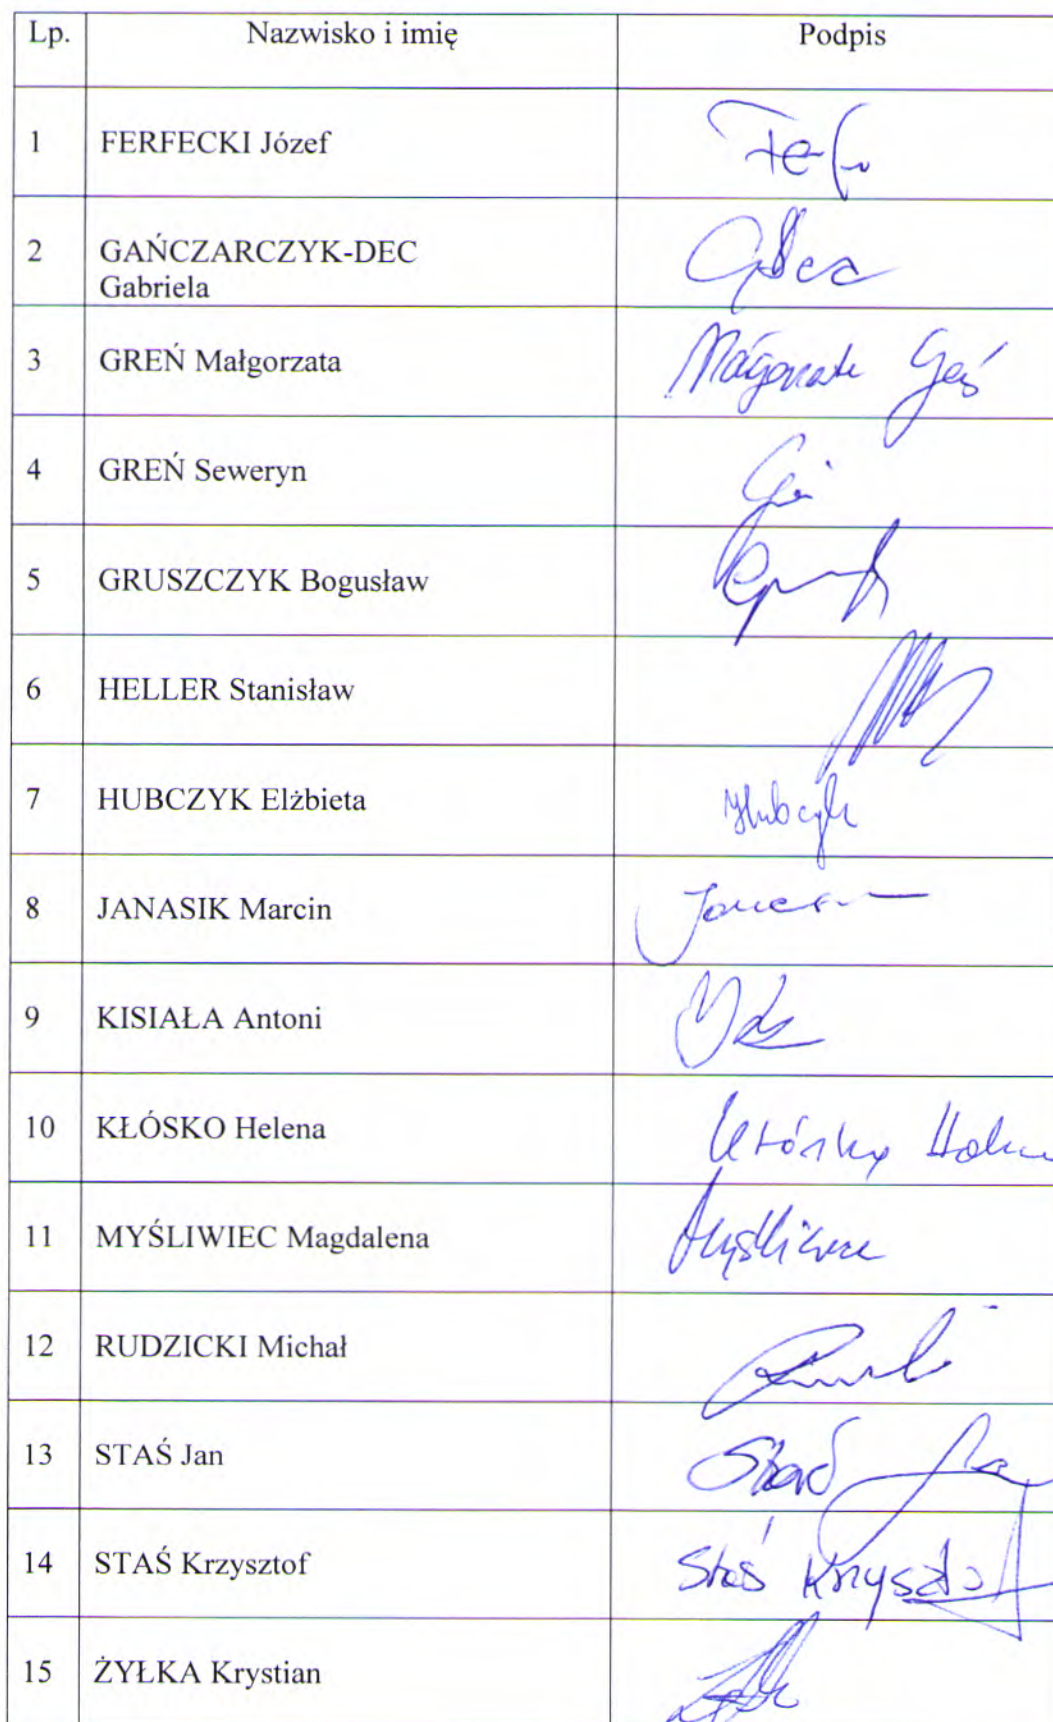 Lp. Nazwisko i imię Podpis
1 FERFECKI Józef
2 GAŃCZARCZYK-DEC
Gabriela
3 GREŃ Małgorzata Małgorzata Greń
4 GREŃ Seweryn
5 GRUSZCZYK Bogusław
6 HELLER Stanisław
7 HUBCZYK Elżbieta Hubczyk
8 JANASIK Marcin
9 KISIAŁA Antoni
10 KŁÓSKO Helena
11 MYŚLIWIEC Magdalena
12 RUDZICKI Michał
13 STAŚ Jan
14 STAŚ Krzysztof Staś Krzysztof
15 ŻYŁKA Krystian